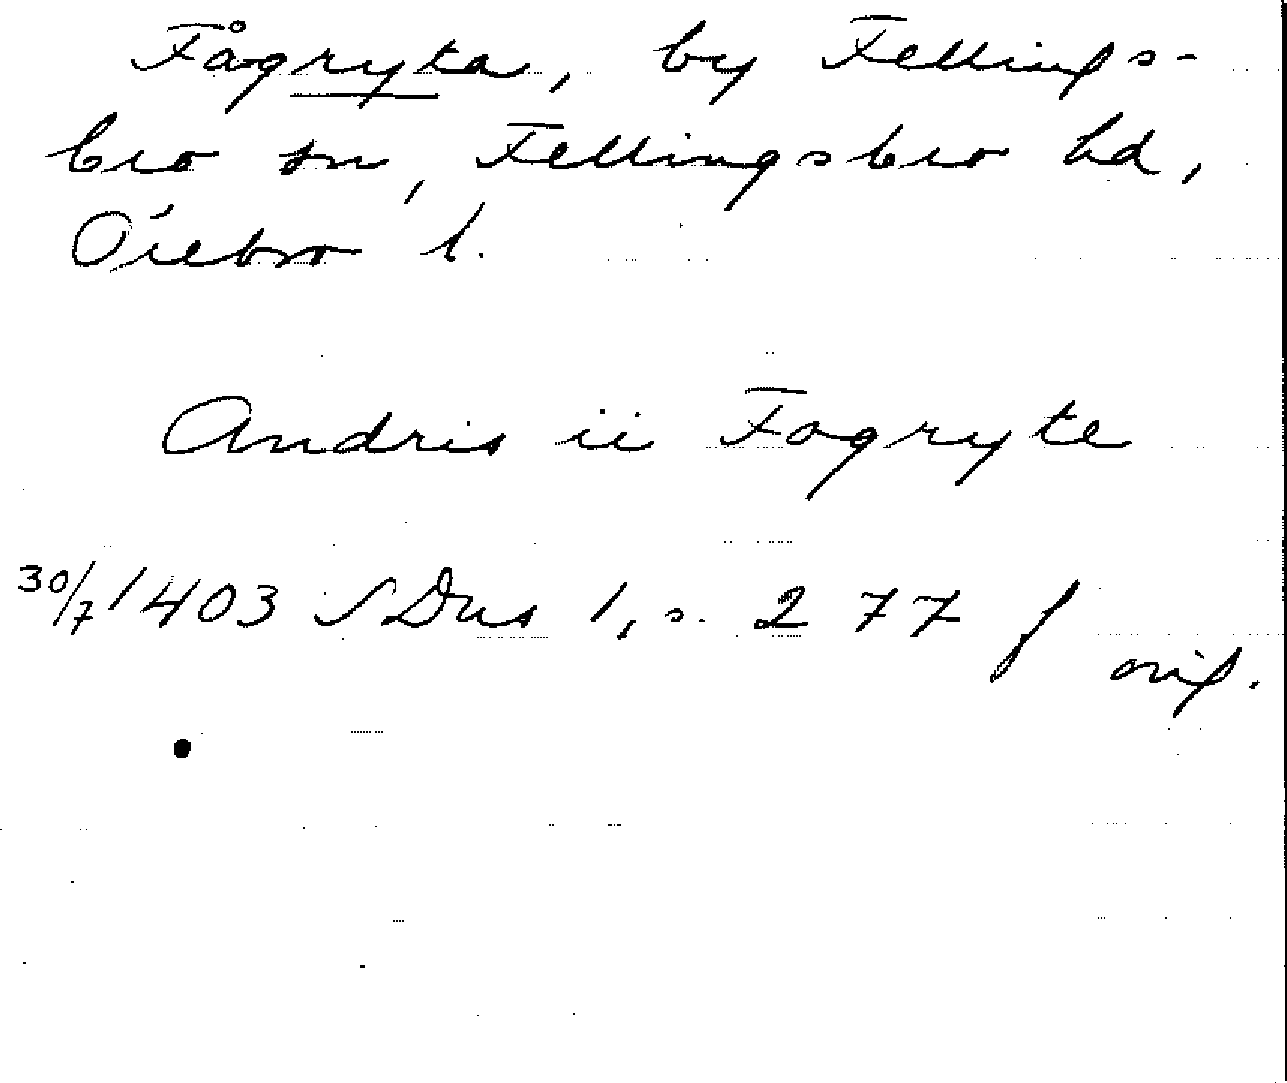 Fågryta, by Fellings-
bro sn, Fellingsbro hd,
Örebro l.
Andris ii Fogryte
30/7 1403 SDns 1, s. 277 f
orig.